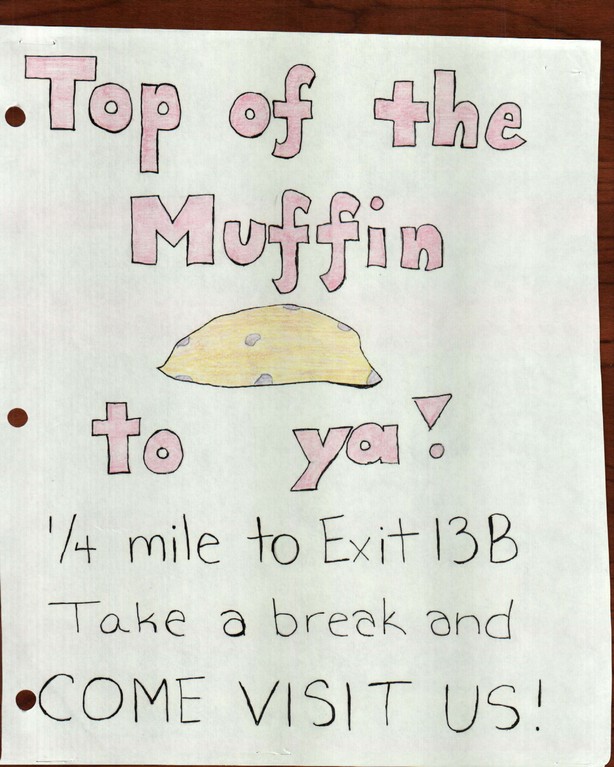 Top of the
Muffin
to ya!
1/4 mile to Exit 13B
Take a break and
COME VISIT US!